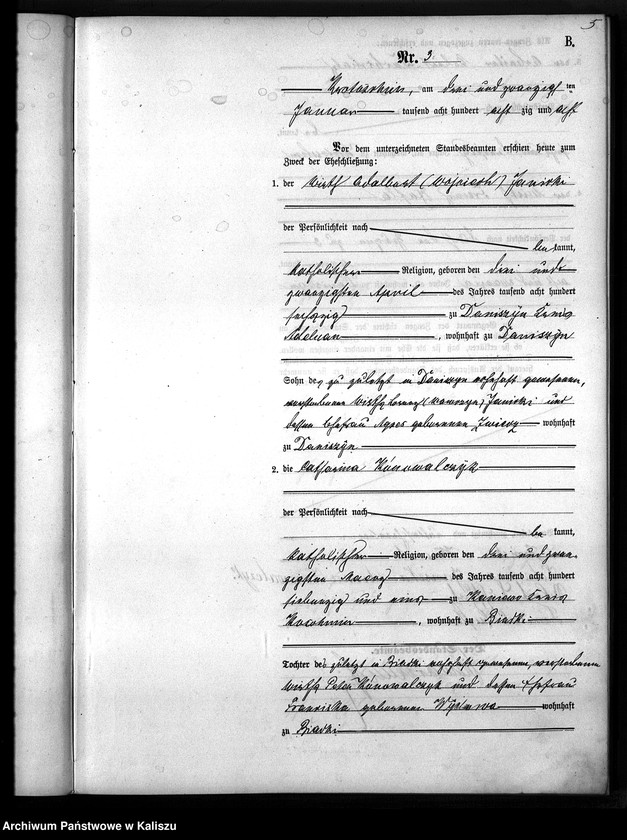 5
B.
Nr. 3
Krotoschin, am drei und zwanzigsten
Januar tausend acht hundert acht zig und acht
Vor dem unterzeichneten Standesbeamten erschien heute zum
Zweck der Eheschließung:
1. der Wirth Adalbert (Wojciech) Janicki
der Persönlichkeit nach
be kannt,
katholischer Religion, geboren den drei und
zwanzigsten April des Jahres tausend acht hundert
sechzig zu Daniszyn Kreis
Adelnau, wohnhaft zu Daniszyn
Sohn des zu zuletzt in Daniszyn wohnhaft gewesenen,
verstorbenen Wirths Lorenz (Wawrzyn) Janicki und
dessen Ehefrau Agnes geborenen wohnhaft
zu Daniszyn
2. die Catharina Konowalczyk
der Persönlichkeit nach
be kannt,
katholischer Religion, geboren den drei und zwan-
zigsten des Jahres tausend acht hundert
siebenzig und eins zu Kreis
, wohnhaft zu Biadki
Tochter des zuletzt in Biadki wohnhaft gewesenen, verstorbenen
Wirths Peter Konowalczyk und dessen Ehefrau
Franziska geborenen wohnhaft
zu Biadki
Archiwum Państwowe w Kaliszu